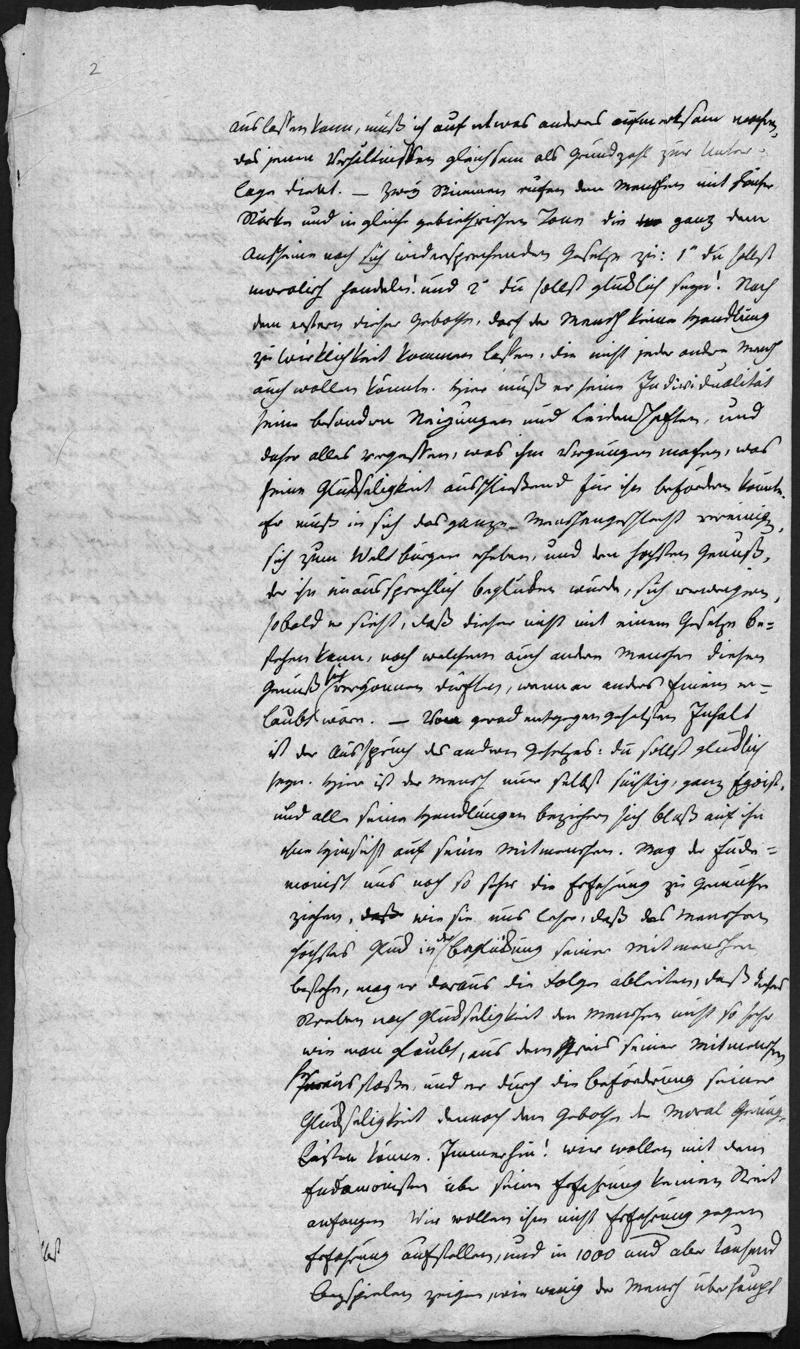 2
auslassen kann, muß ich auf etwas anders aufmerksam machen,
das jenen Verhältnissen gleichsam als Grundzahl zur Unter-
lage dient. — Zwey Stimmen rufen dem Menschen mit hoher
Stärke und in gleich gebietherischen Tone die ganz dem
Anscheine nach sich widersprechenden Gesetze zu: 1° du sollst
moralisch handeln! und 2° du sollst glücklich seyn! Nach
dem erstern dieser Gebothe, darf der Mensch keine Handlung
zu Wirklichkeit kommen lassen, die nicht jeder andre Mensch
auch wollen könnte. Hier muß er seine Individualität
seine besondren Neigungen und Leidenschaften, und
daher alles vergessen, was ihm Vergnügen machen, was
seine Glückseligkeit ausschließend für ihn befördern könnte.
Er muß in sich das ganze Menschengeschlecht vereinigen,
sich zum Weltbürger erheben, und den höchsten Genuß,
der ihn unaussprechlich beglücken würde, sich verweigern,
sobald er sieht, daß dieser nicht mit einem Gesetze be-
stehen kann, nach welchem auch andre Menschen diesen
Genuß sich vergönnen dürften, wenn er anders ihnen er-
laubt wäre. — Von grad entgegengesetzten Inhalt
ist der Ausspruch des andern Gesetzes: du sollst glücklich
seyn. Hier ist der Mensch nur selbst süchtig, ganz Egoist,
und alle seine Handlungen beziehen sich bloß auf ihn
ohne Hinsicht auf seine Mitmenschen. Mag der Eudä-
monist uns noch so sehr die Erfahrung zu Gemüthe
ziehen, wie sie uns lehre, daß des Menschen
höchstes Glück in der Beglückung seiner Mitmenschen
bestehe, mag er daraus die Folge ableiten, daß
Streben nach Glückseligkeit den Menschen nicht so sehr
wie man glaubt, aus dem Kreis seiner Mitmenschen
herausstoße, und er durch die Beförderung seiner
Glückseligkeit dennoch dem Gebothe der Moral Genüge
leisten könne. Immerhin! wir wollen mit dem
Eudämonisten über seine Erfahrung keinen Streit
anfangen. Wir wollen ihm nicht Erfahrung gegen
Erfahrung aufstellen, und in 1000 und aber tausend
Beyspielen zeigen, wie wenig der Mensch überhaupt